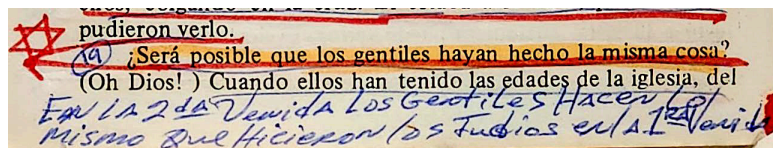 pudieron verlo.
19 ¿Será posible que los gentiles hayan hecho la misma cosa?
(Oh Dios! ) Cuando ellos han tenido las edades de la iglesia, del
EN LA 2da Venida Los Gentiles Hacen Lo
mismo que Hicieron los Judios en la 1RA Venida